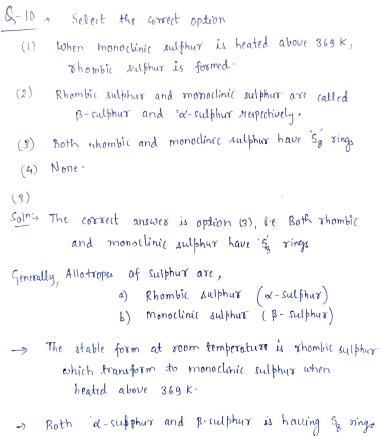 Q-10 → Select the correct option
(1) When monoclinic sulphur is heated above 369 K,
rhombic sulphur is formed.
(2) Rhombic sulphur and monoclinic sulphur are called
β-sulphur and 'α'-sulphur respectively.
(3) Both rhombic and monoclinic sulphur have 'S₈' rings
(4) None.
(3)
Solⁿ:→ The correct answer is option (3), i.e Both rhombic
and monoclinic sulphur have 'S₈' rings
Generally, Allotropes of sulphur are,
a) Rhombic sulphur (α-sulphur)
b) Monoclinic sulphur (β-sulphur)
→ The stable form at room temperature is rhombic sulphur
which transform to monoclinic sulphur when
heated above 369 K.
→ Both α-sulphur and β-sulphur is having S₈ rings